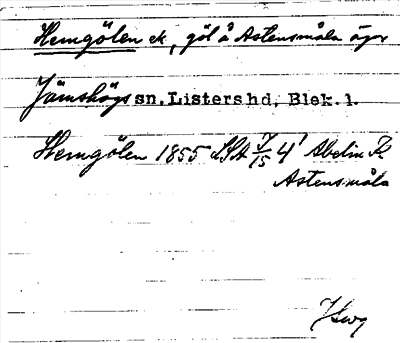 Hemgölen ek, göl å Astensmåla ägor
Jämshögs sn. Listers hd, Blek. l.
Hemgölen 1855 LSA 4' Abelin K.
Astensmåla